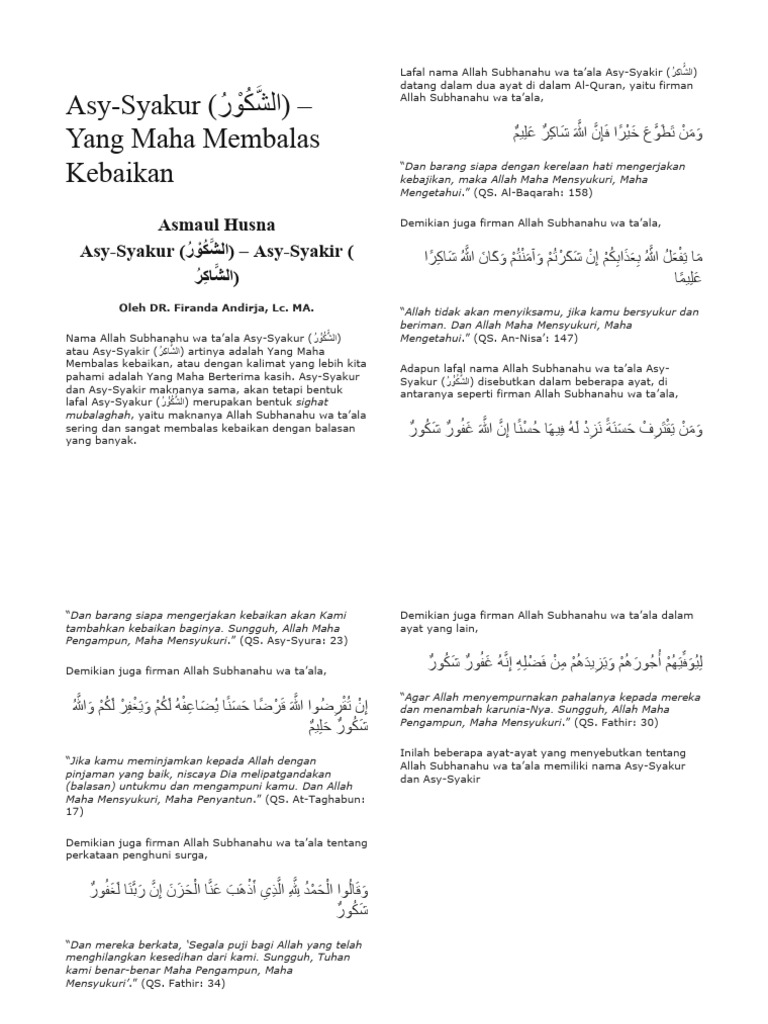 Asy-Syakur (الشَّكُوْرُ) –
Yang Maha Membalas
Kebaikan
Asmaul Husna
Asy-Syakur (الشَّكُوْرُ) – Asy-Syakir (
الشَّاكِرُ)
Oleh DR. Firanda Andirja, Lc. MA.
Nama Allah Subhanahu wa ta’ala Asy-Syakur (الشَّكُوْرُ)
atau Asy-Syakir (الشَّاكِرُ) artinya adalah Yang Maha
Membalas kebaikan, atau dengan kalimat yang lebih kita
pahami adalah Yang Maha Berterima kasih. Asy-Syakur
dan Asy-Syakir maknanya sama, akan tetapi bentuk
lafal Asy-Syakur (الشَّكُوْرُ) merupakan bentuk sighat
mubalaghah, yaitu maknanya Allah Subhanahu wa ta’ala
sering dan sangat membalas kebaikan dengan balasan
yang banyak.
Lafal nama Allah Subhanahu wa ta’ala Asy-Syakir (الشَّاكِرُ)
datang dalam dua ayat di dalam Al-Quran, yaitu firman
Allah Subhanahu wa ta’ala,
وَمَنْ تَطَوَّعَ خَيْرًا فَإِنَّ اللَّهَ شَاكِرٌ عَلِيمٌ
“Dan barang siapa dengan kerelaan hati mengerjakan
kebajikan, maka Allah Maha Mensyukuri, Maha
Mengetahui.” (QS. Al-Baqarah: 158)
Demikian juga firman Allah Subhanahu wa ta’ala,
مَا يَفْعَلُ اللَّهُ بِعَذَابِكُمْ إِنْ شَكَرْتُمْ وَآمَنْتُمْ وَكَانَ اللَّهُ شَاكِرًا
عَلِيمًا
“Allah tidak akan menyiksamu, jika kamu bersyukur dan
beriman. Dan Allah Maha Mensyukuri, Maha
Mengetahui.” (QS. An-Nisa’: 147)
Adapun lafal nama Allah Subhanahu wa ta’ala Asy-
Syakur (الشَّكُوْرُ) disebutkan dalam beberapa ayat, di
antaranya seperti firman Allah Subhanahu wa ta’ala,
وَمَنْ يَقْتَرِفْ حَسَنَةً نَزِدْ لَهُ فِيهَا حُسْنًا إِنَّ اللَّهَ غَفُورٌ شَكُورٌ
“Dan barang siapa mengerjakan kebaikan akan Kami
tambahkan kebaikan baginya. Sungguh, Allah Maha
Pengampun, Maha Mensyukuri.” (QS. Asy-Syura: 23)
Demikian juga firman Allah Subhanahu wa ta’ala,
إِنْ تُقْرِضُوا اللَّهَ قَرْضًا حَسَنًا يُضَاعِفْهُ لَكُمْ وَيَغْفِرْ لَكُمْ وَاللَّهُ
شَكُورٌ حَلِيمٌ
“Jika kamu meminjamkan kepada Allah dengan
pinjaman yang baik, niscaya Dia melipatgandakan
(balasan) untukmu dan mengampuni kamu. Dan Allah
Maha Mensyukuri, Maha Penyantun.” (QS. At-Taghabun:
17)
Demikian juga firman Allah Subhanahu wa ta’ala tentang
perkataan penghuni surga,
وَقَالُوا الْحَمْدُ لِلَّهِ الَّذِي أَذْهَبَ عَنَّا الْحَزَنَ إِنَّ رَبَّنَا لَغَفُورٌ
شَكُورٌ
“Dan mereka berkata, ‘Segala puji bagi Allah yang telah
menghilangkan kesedihan dari kami. Sungguh, Tuhan
kami benar-benar Maha Pengampun, Maha
Mensyukuri’.” (QS. Fathir: 34)
Demikian juga firman Allah Subhanahu wa ta’ala dalam
ayat yang lain,
لِيُوَفِّيَهُمْ أُجُورَهُمْ وَيَزِيدَهُمْ مِنْ فَضْلِهِ إِنَّهُ غَفُورٌ شَكُورٌ
“Agar Allah menyempurnakan pahalanya kepada mereka
dan menambah karunia-Nya. Sungguh, Allah Maha
Pengampun, Maha Mensyukuri.” (QS. Fathir: 30)
Inilah beberapa ayat-ayat yang menyebutkan tentang
Allah Subhanahu wa ta’ala memiliki nama Asy-Syakur
dan Asy-Syakir